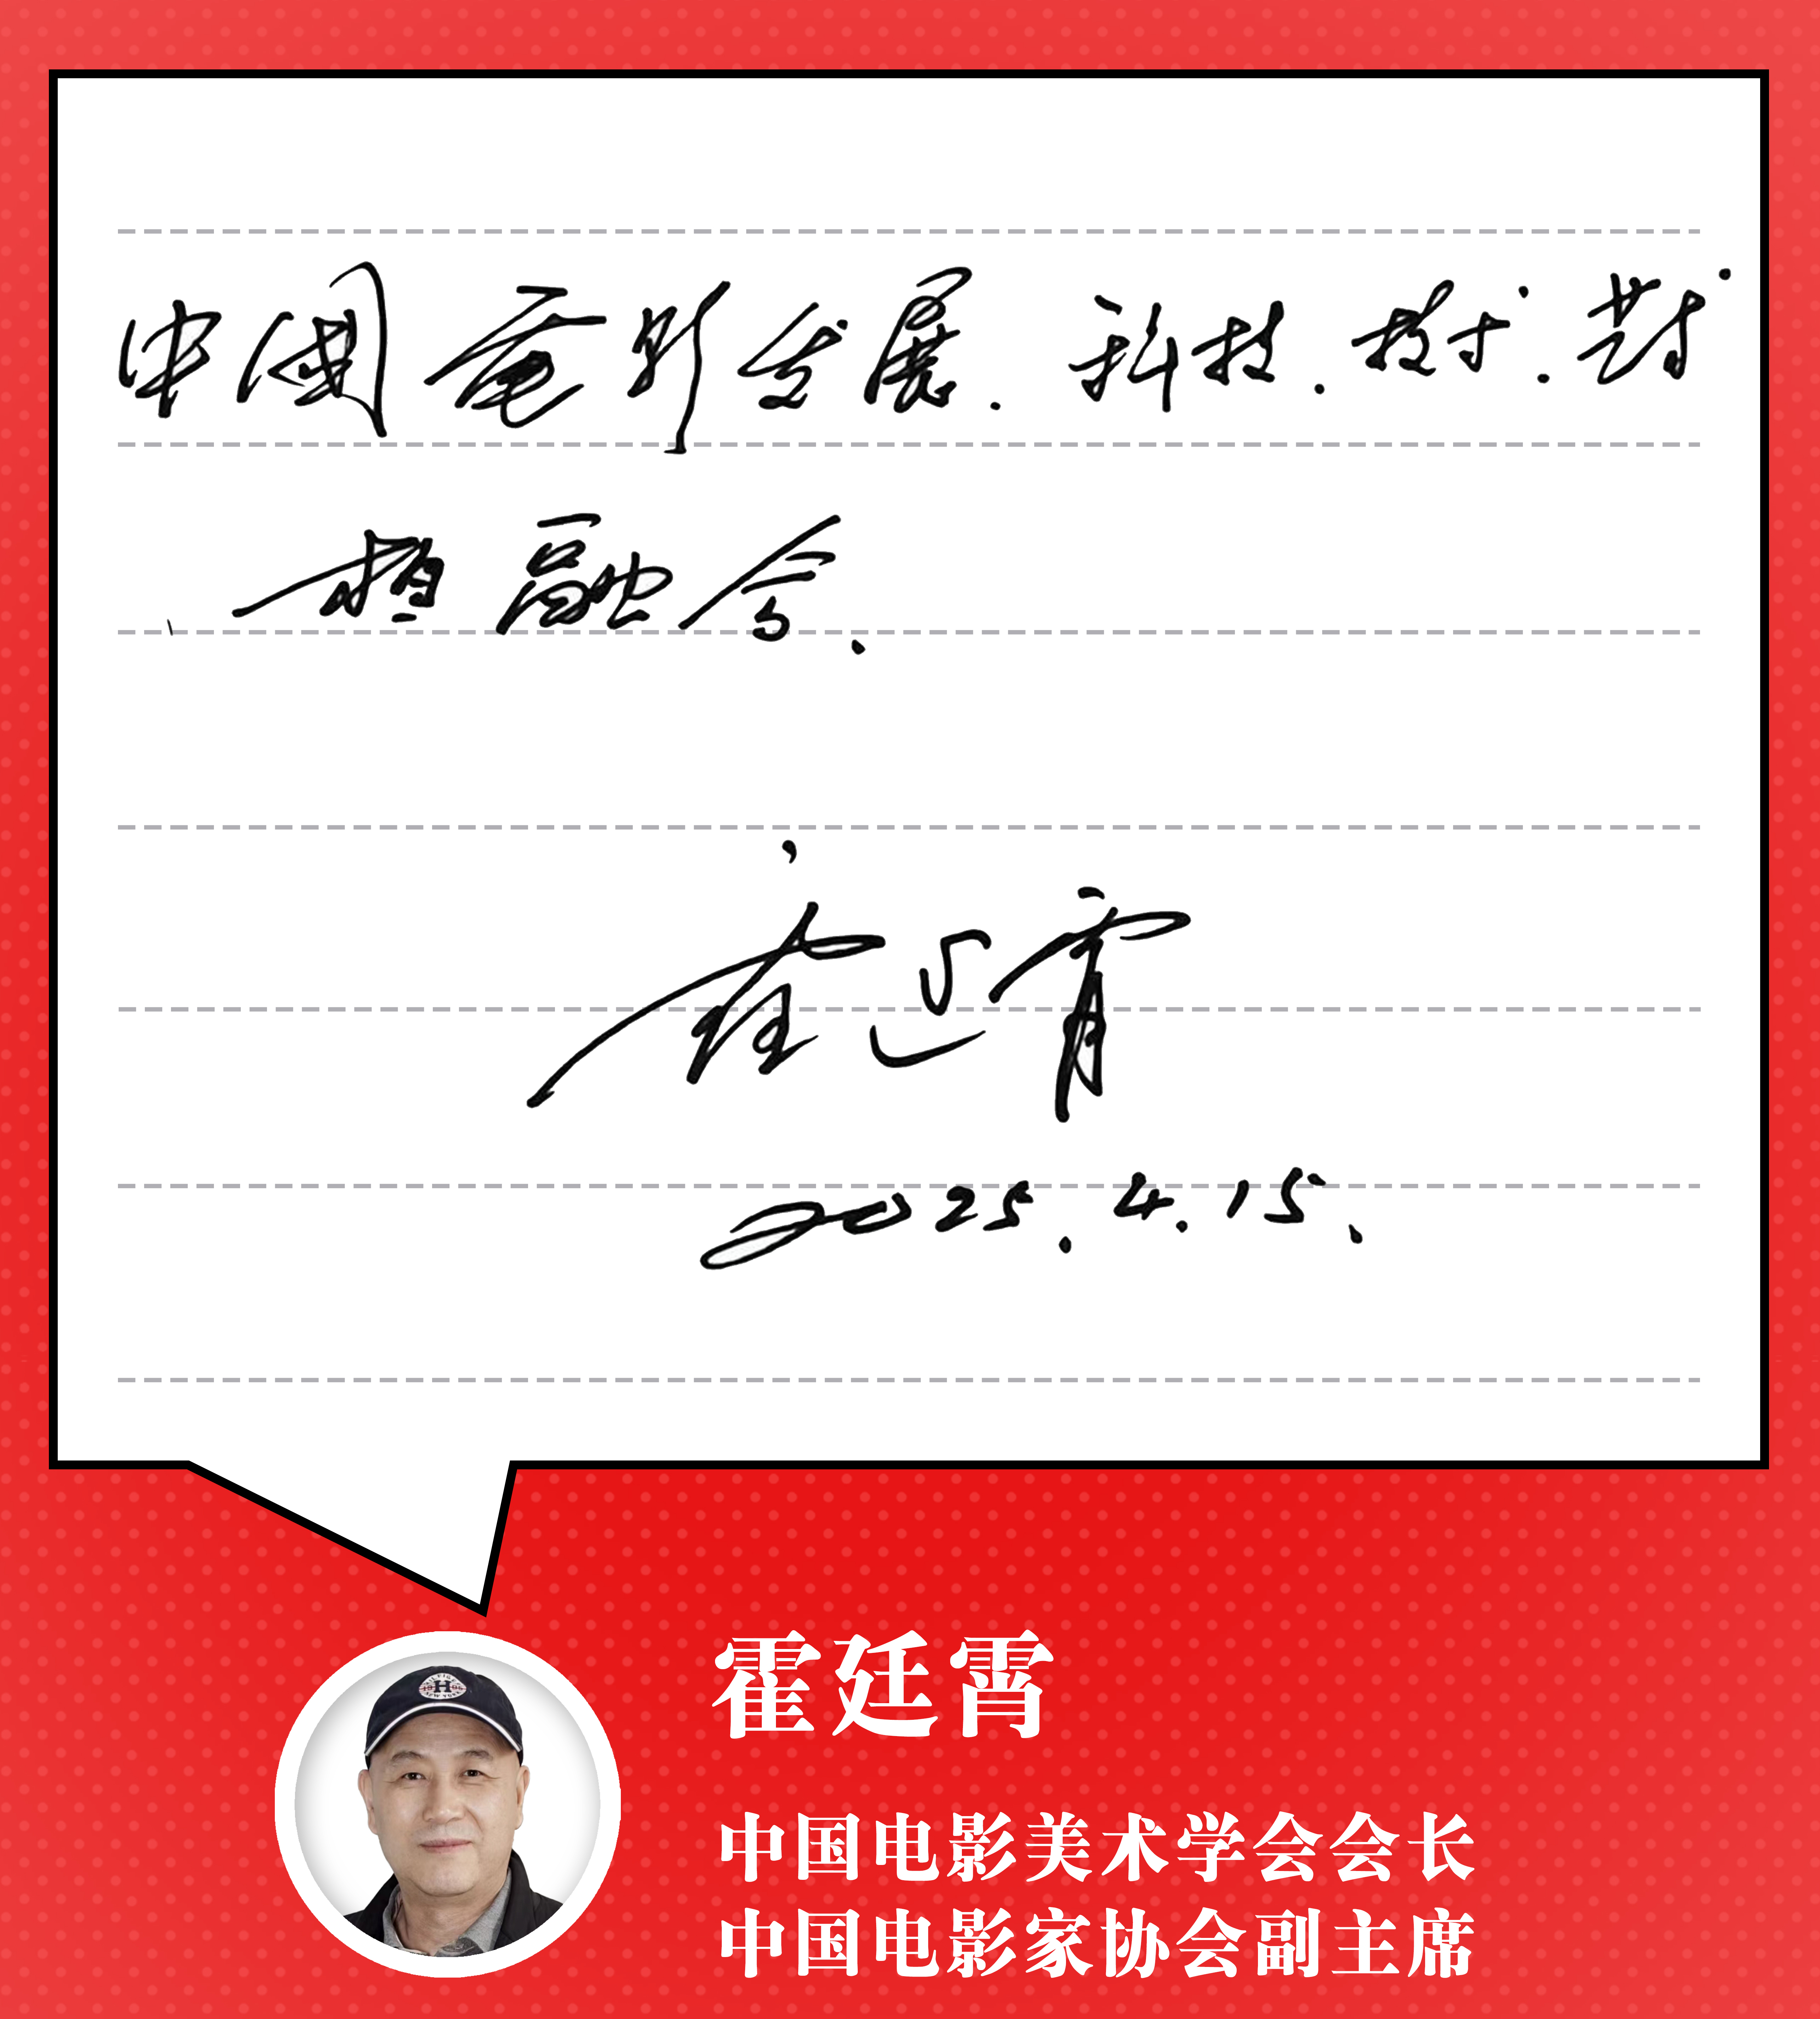 中國電影发展.科技.技术.艺术
相融合.
霍廷霄
2025.4.15.
霍廷霄
中国电影美术学会会长
中国电影家协会副主席